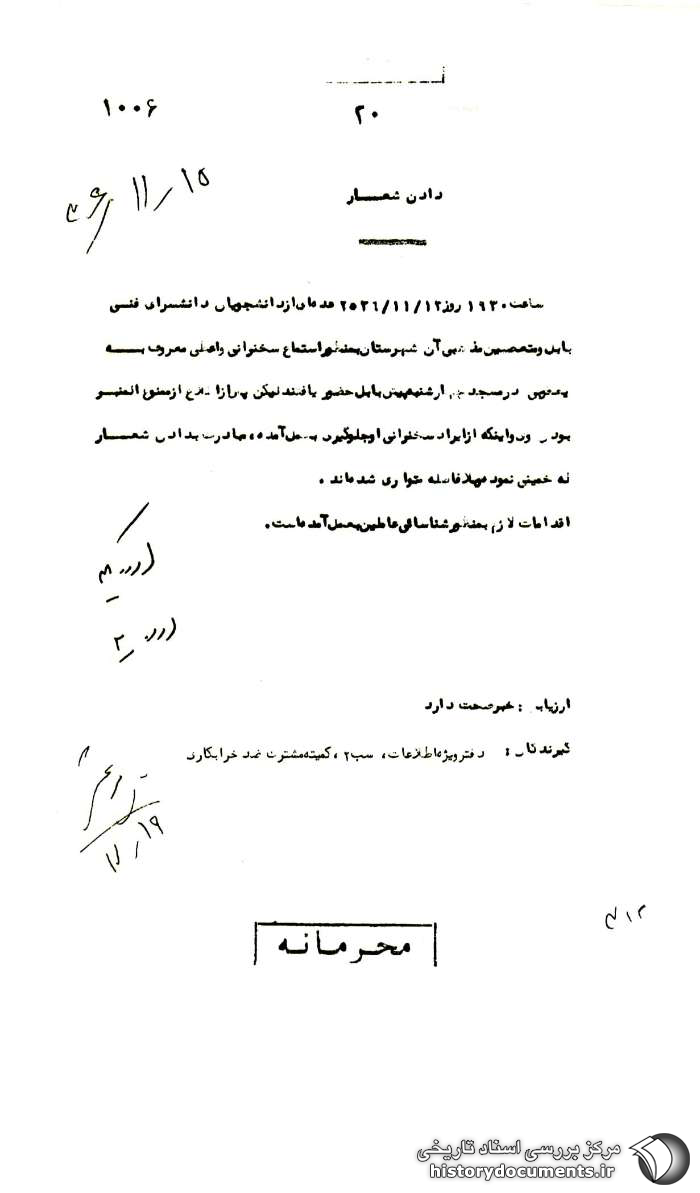 ۱۰۰۶
۲۰
۱۵ / ۱۱
دادن شعــار
ساعت ۱۹۳۰ روز ۲۵۳۶/۱۱/۱۲ عده‌ای از دانشجویان دانشسرای فنی
بابل و متعصبین مذهبی آن شهرستان بمنظور استماع سخنرانی واعظی معروف بـــه
در مسجد بابل حضور یافتند لیکن پس از اطلاع از ممنوع المنبــر
بودن وی و اینکه از ایراد سخنرانی او جلوگیری بعمل آمده، مبادرت بدادن شعــار
له خمینی نموده بلافاصله متواری شده‌اند .
اقدامات لازم بمنظور شناسائی عاملین بعمل آمده است.
ارزیابی : خبر صحت دارد
گیرندگان : دفتر ویژه اطلاعات، سب۲ ، کمیته مشترک ضد خرابکاری
۱۹
محرمانه
مرکز بررسی اسناد تاریخی
historydocuments.ir